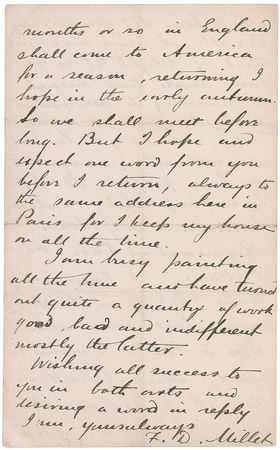 months or so in England
shall come to America
for a season, returning I
hope in the early autumn.
So we shall meet before
long. But I hope and
expect one word from you
before I return, always to
the same address here in
Paris for I keep my house
on all the time.
I am busy painting
all the time and have turned
out quite a quantity of work
good, bad and indifferent
mostly the latter.
Wishing all success to
you in both arts and
desiring a word in reply
I am, yours always
F. D. Millet